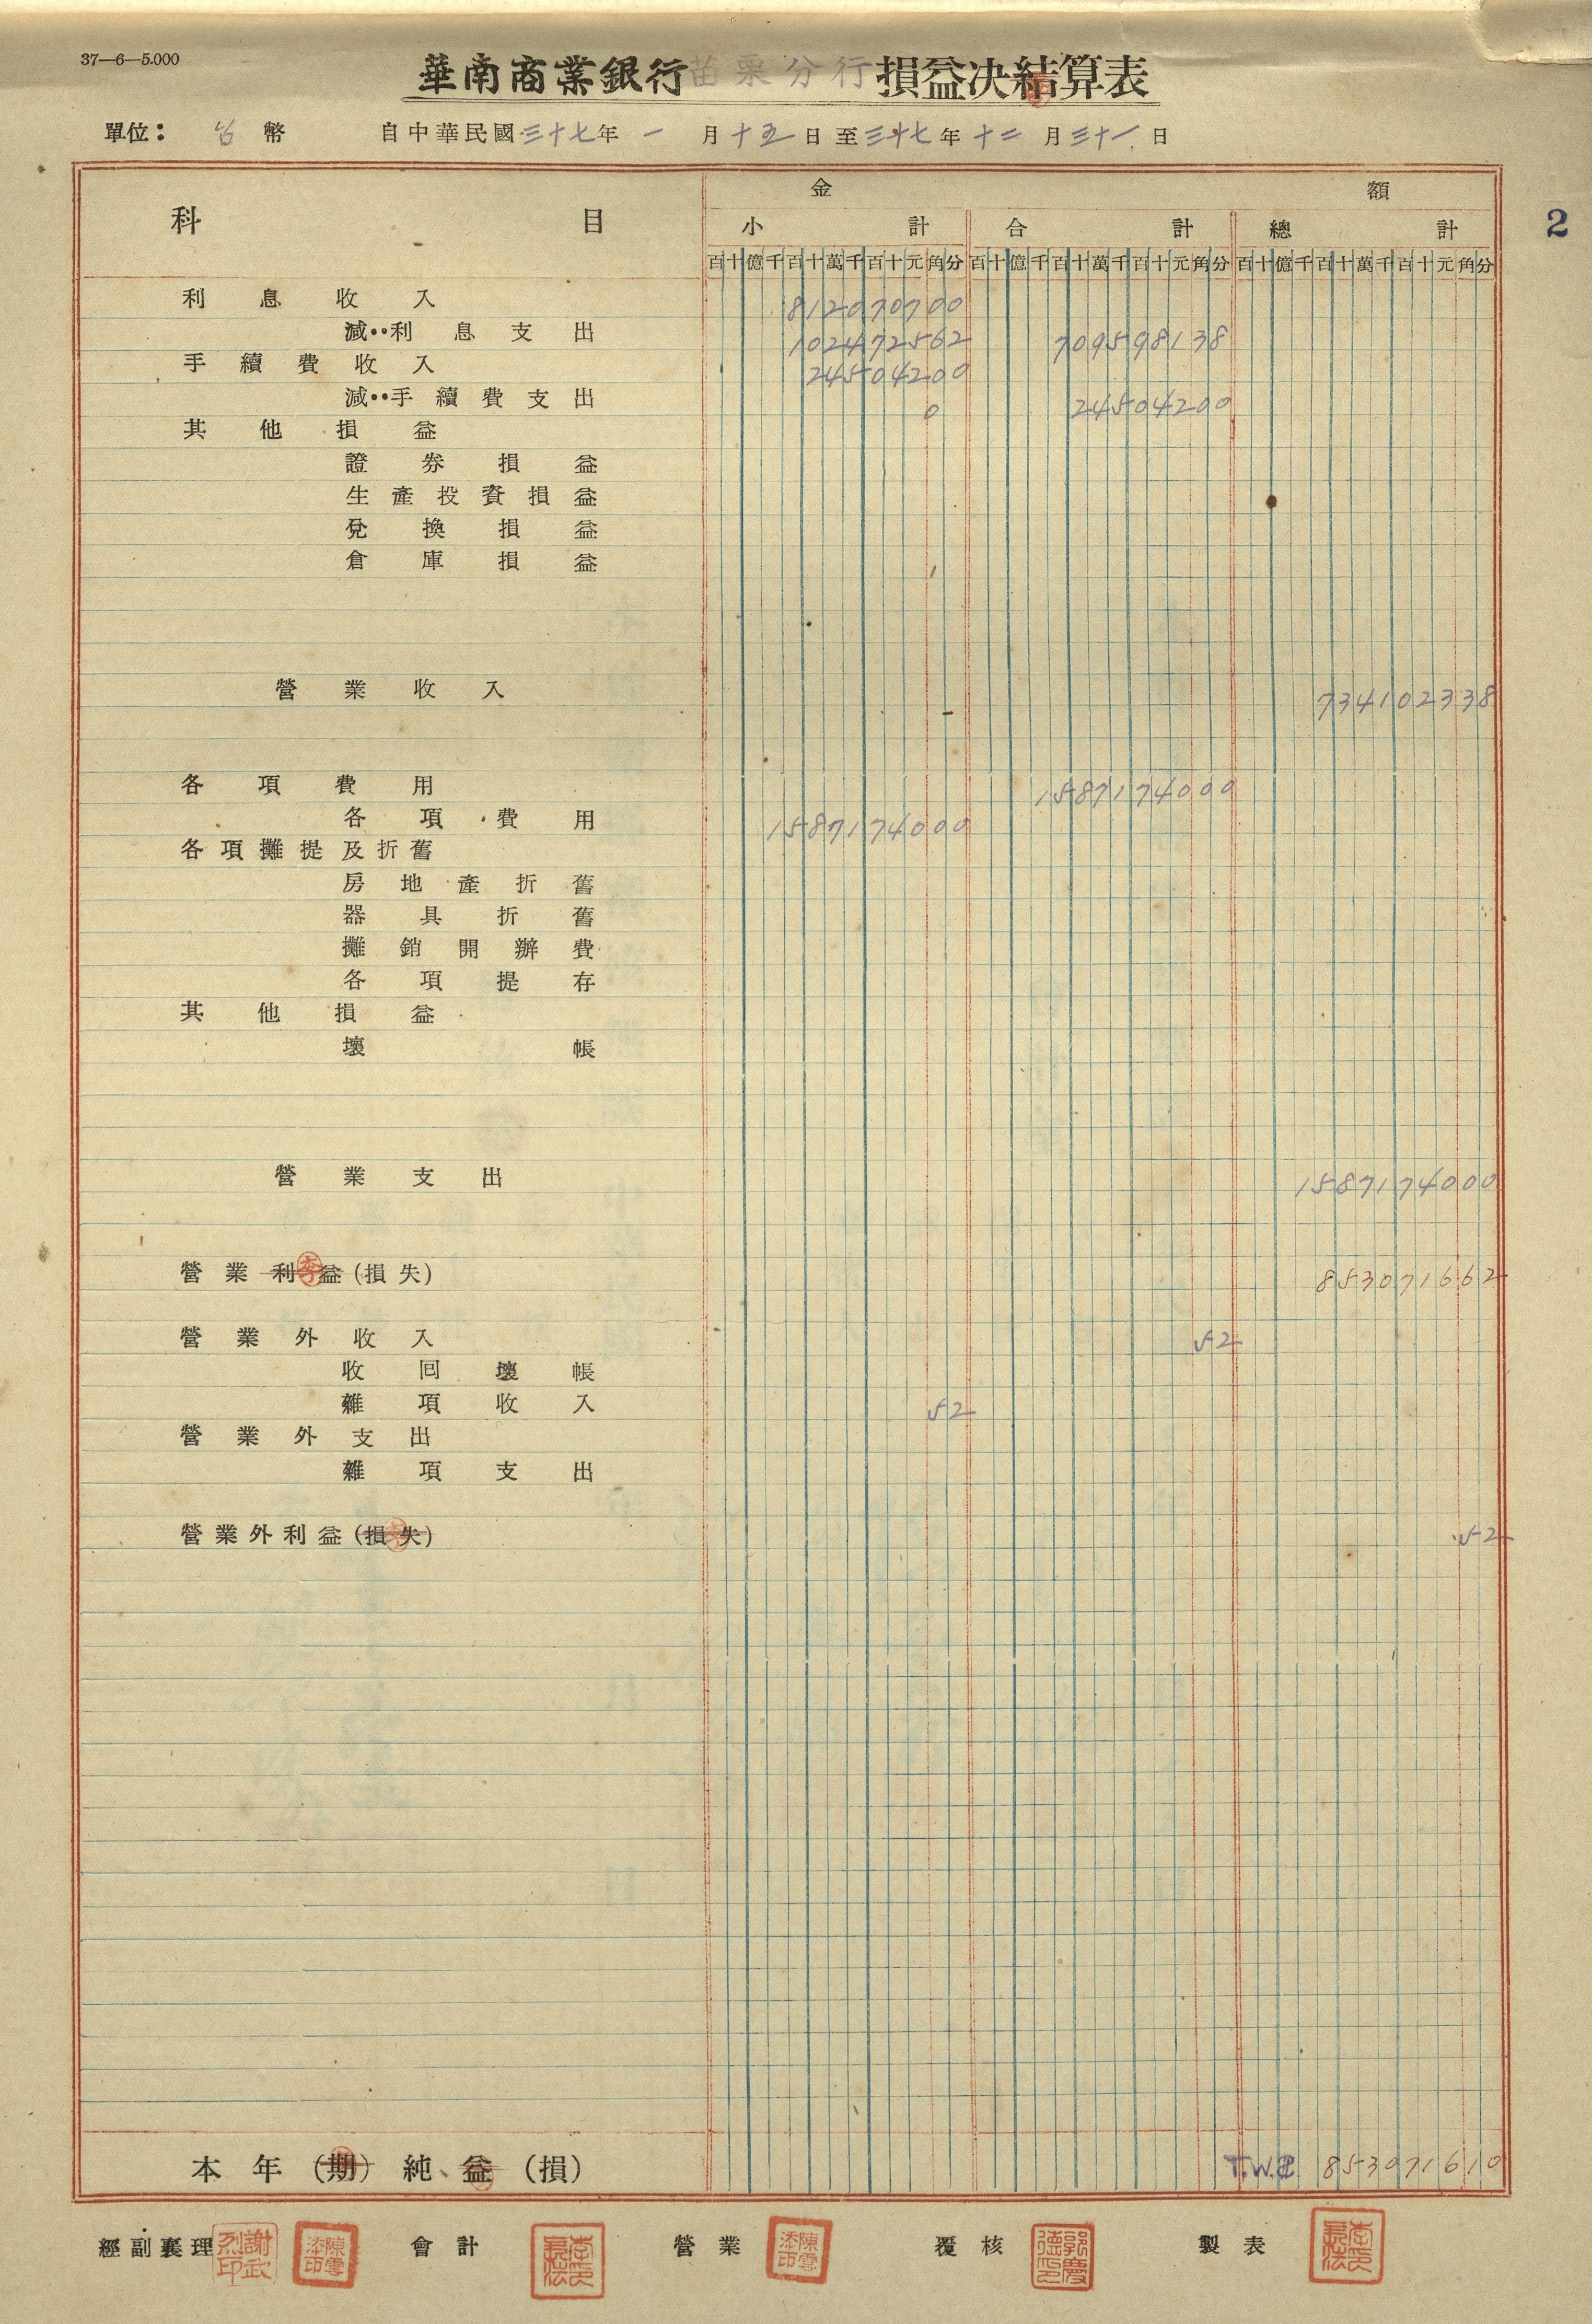 37—6—5.000
華南商業銀行苗栗分行損益決結算表
單位：台幣 自中華民國三十七年一月十五日至三十七年十二月三十一日
2
科目 金額
小計 合計 總計
百十億千百十萬千百十元角分 百十億千百十萬千百十元角分 百十億千百十萬千百十元角分
利息收入 812070700
減‥利息支出 102472562 709598138
手續費收入 24504200
減‥手續費支出 0 24504200
其他損益
證券損益
生產投資損益
兌換損益
倉庫損益
營業收入 734102338
各項費用 1587174000
各項費用 1587174000
各項攤提及折舊
房地產折舊
器具折舊
攤銷開辦費
各項提存
其他損益
壞帳
營業支出 1587174000
營業利益(損失) 853071662
營業外收入 52
收回壞帳
雜項收入 52
營業外支出
雜項支出
營業外利益(損失) 52
本年(期)純益(損) 853071610
經副襄理 謝武烈印 陳雲添印 會計 營業 陳雲添印 覆核 郭慶德印 製表